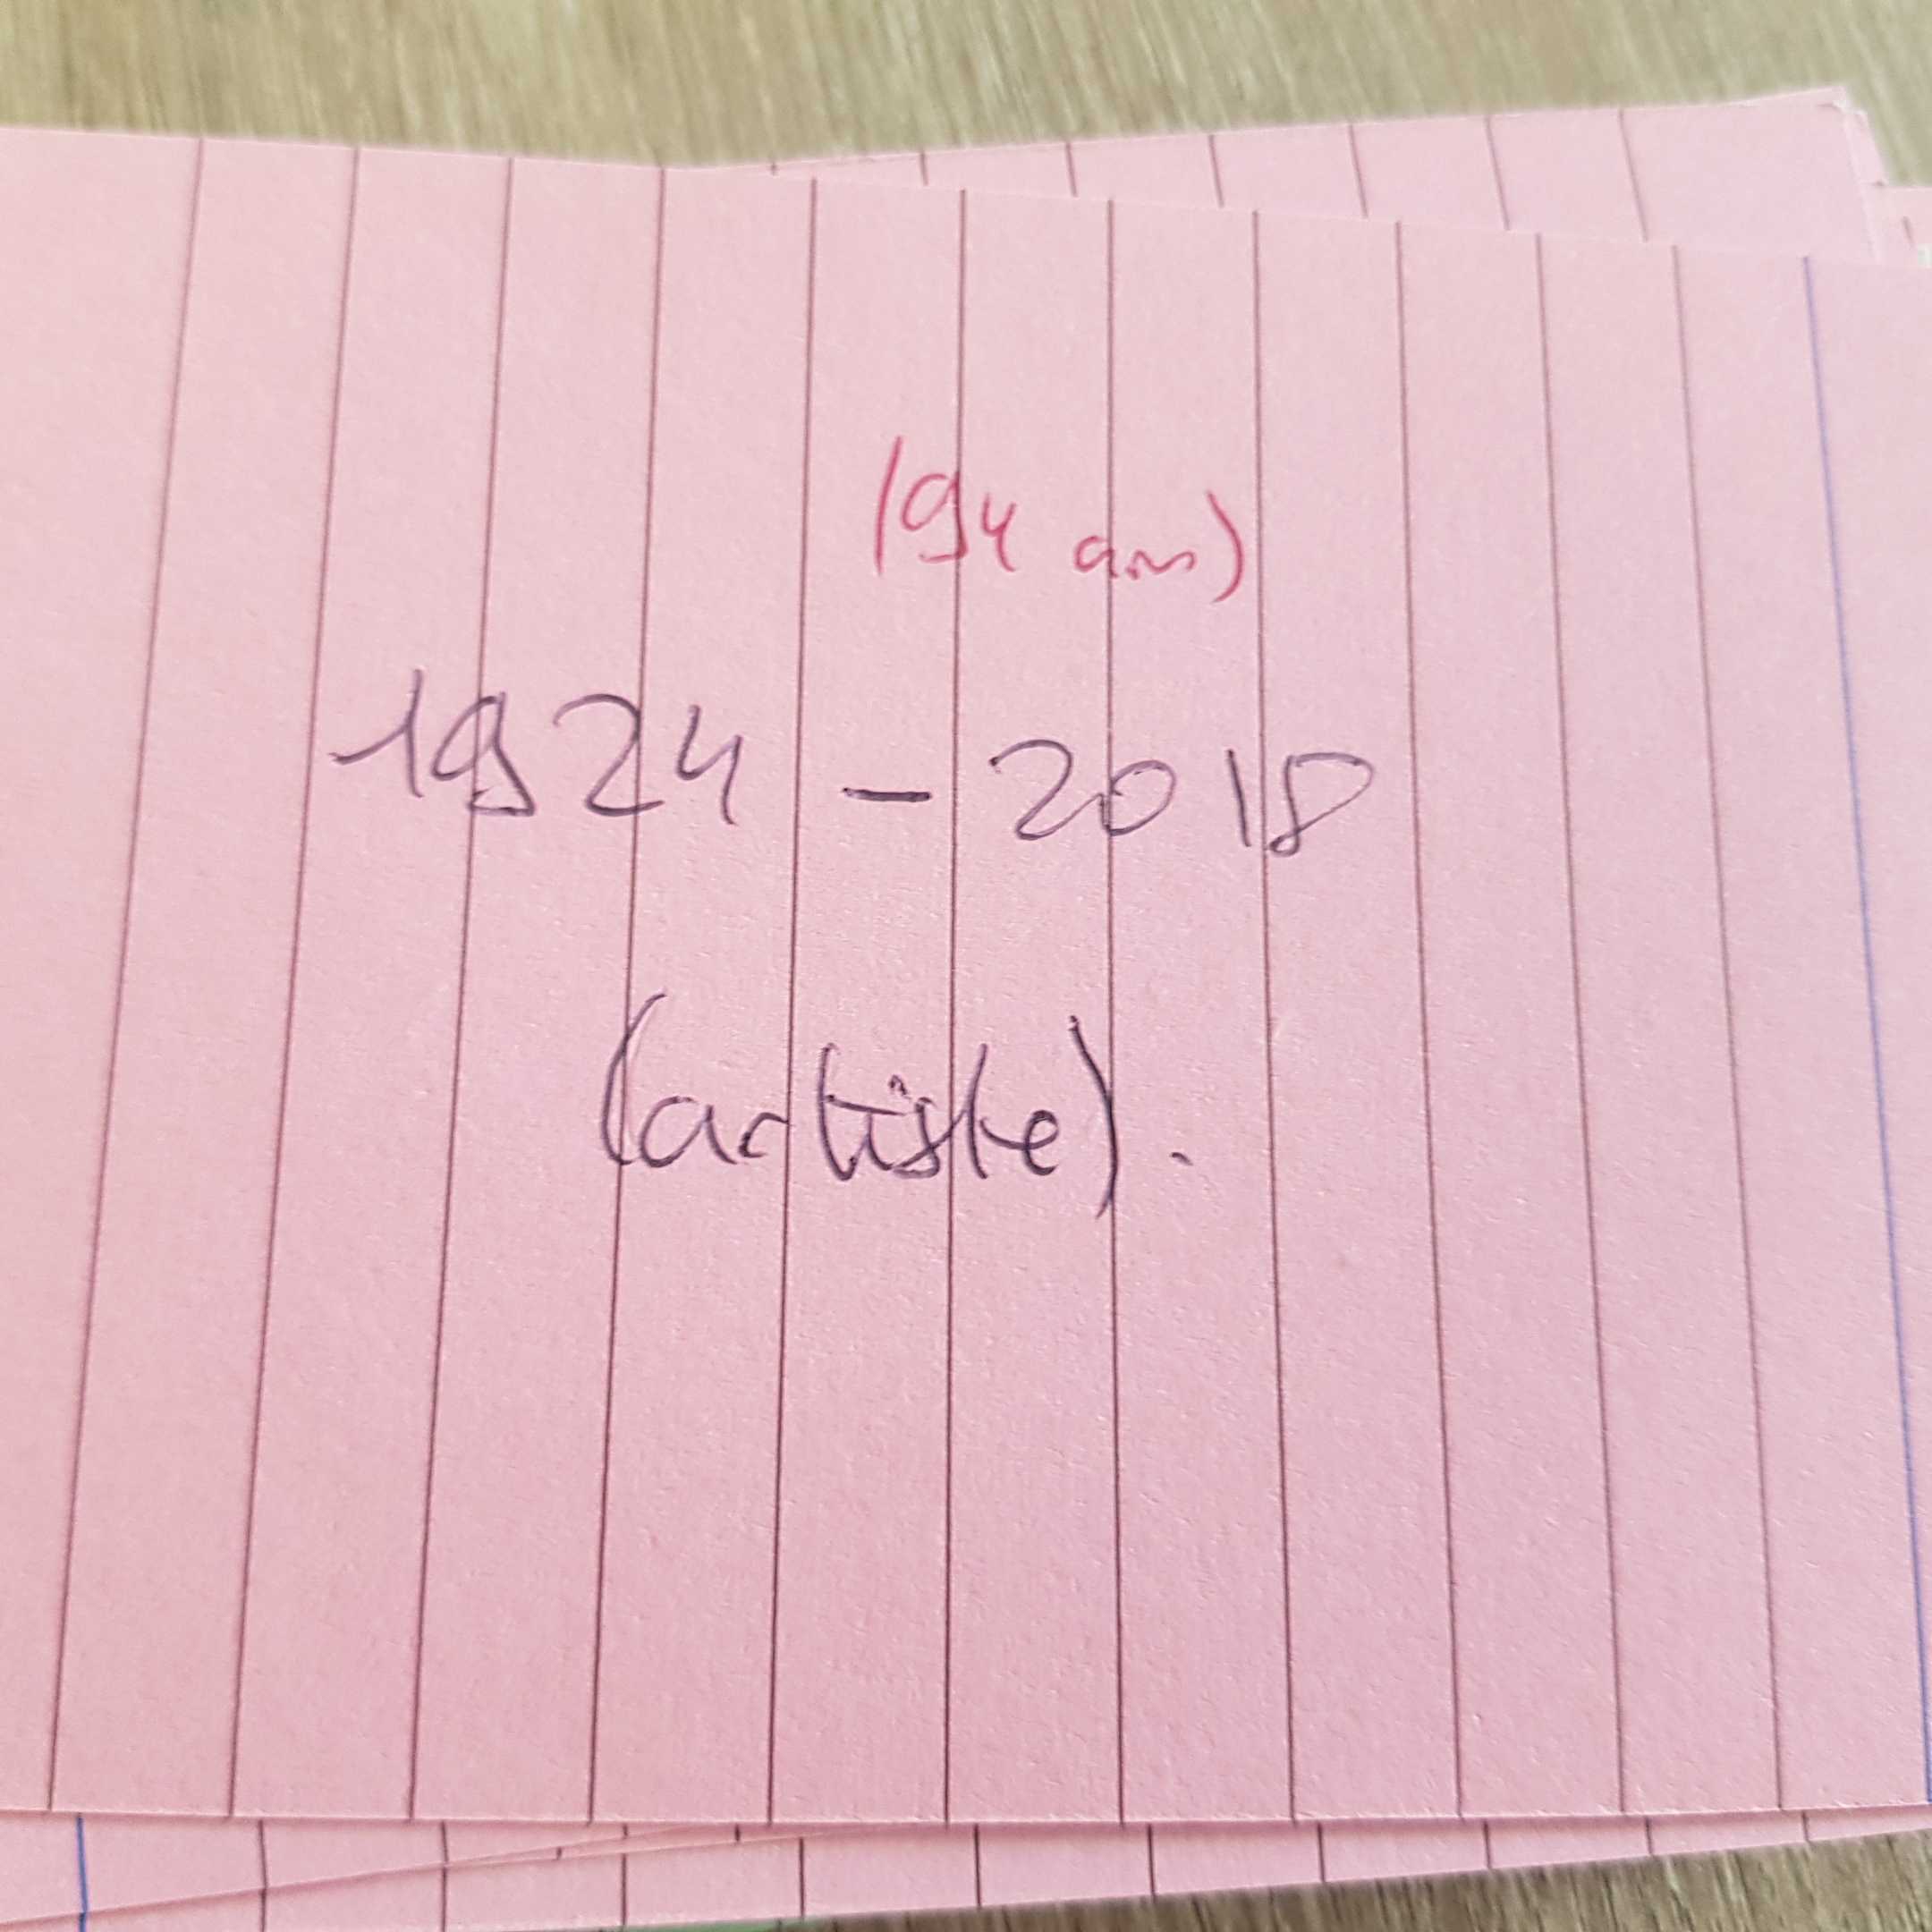 (94 ans)
1924 - 2018
(artiste).